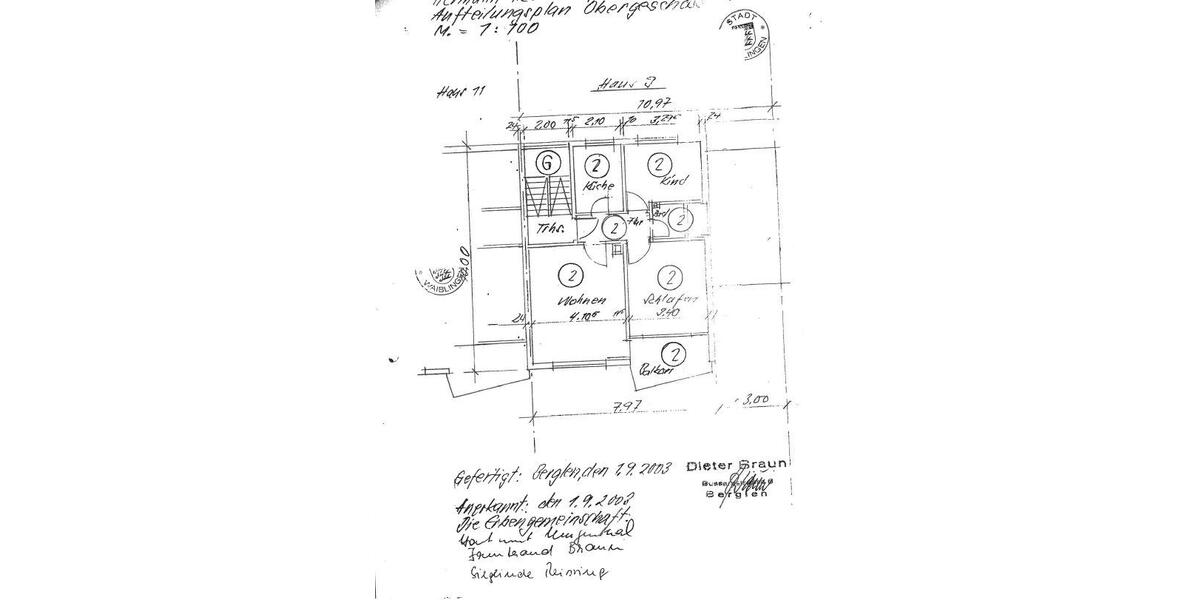 Aufteilungsplan Obergeschoß
M. = 1:100
STADT
WAIBLINGEN
Haus 11
Haus 9
10,97
24 2,00 11⁵ 2,10 10 3,27⁵ 24
G
2
2
Küche
Kind
Trhs.
2
Flur
Bad
2
WAIBLINGEN
2
2
Wohnen
Schlafen
24 4.10⁵ 11⁵ 3.40
2
Balkon
7,97
3,00
Gefertigt: Berglen, den 1.9.2003
Dieter Braun
Berglen
Anerkannt: den 1.9.2003
Die Erbengemeinschaft:
Braun
Sieglinde